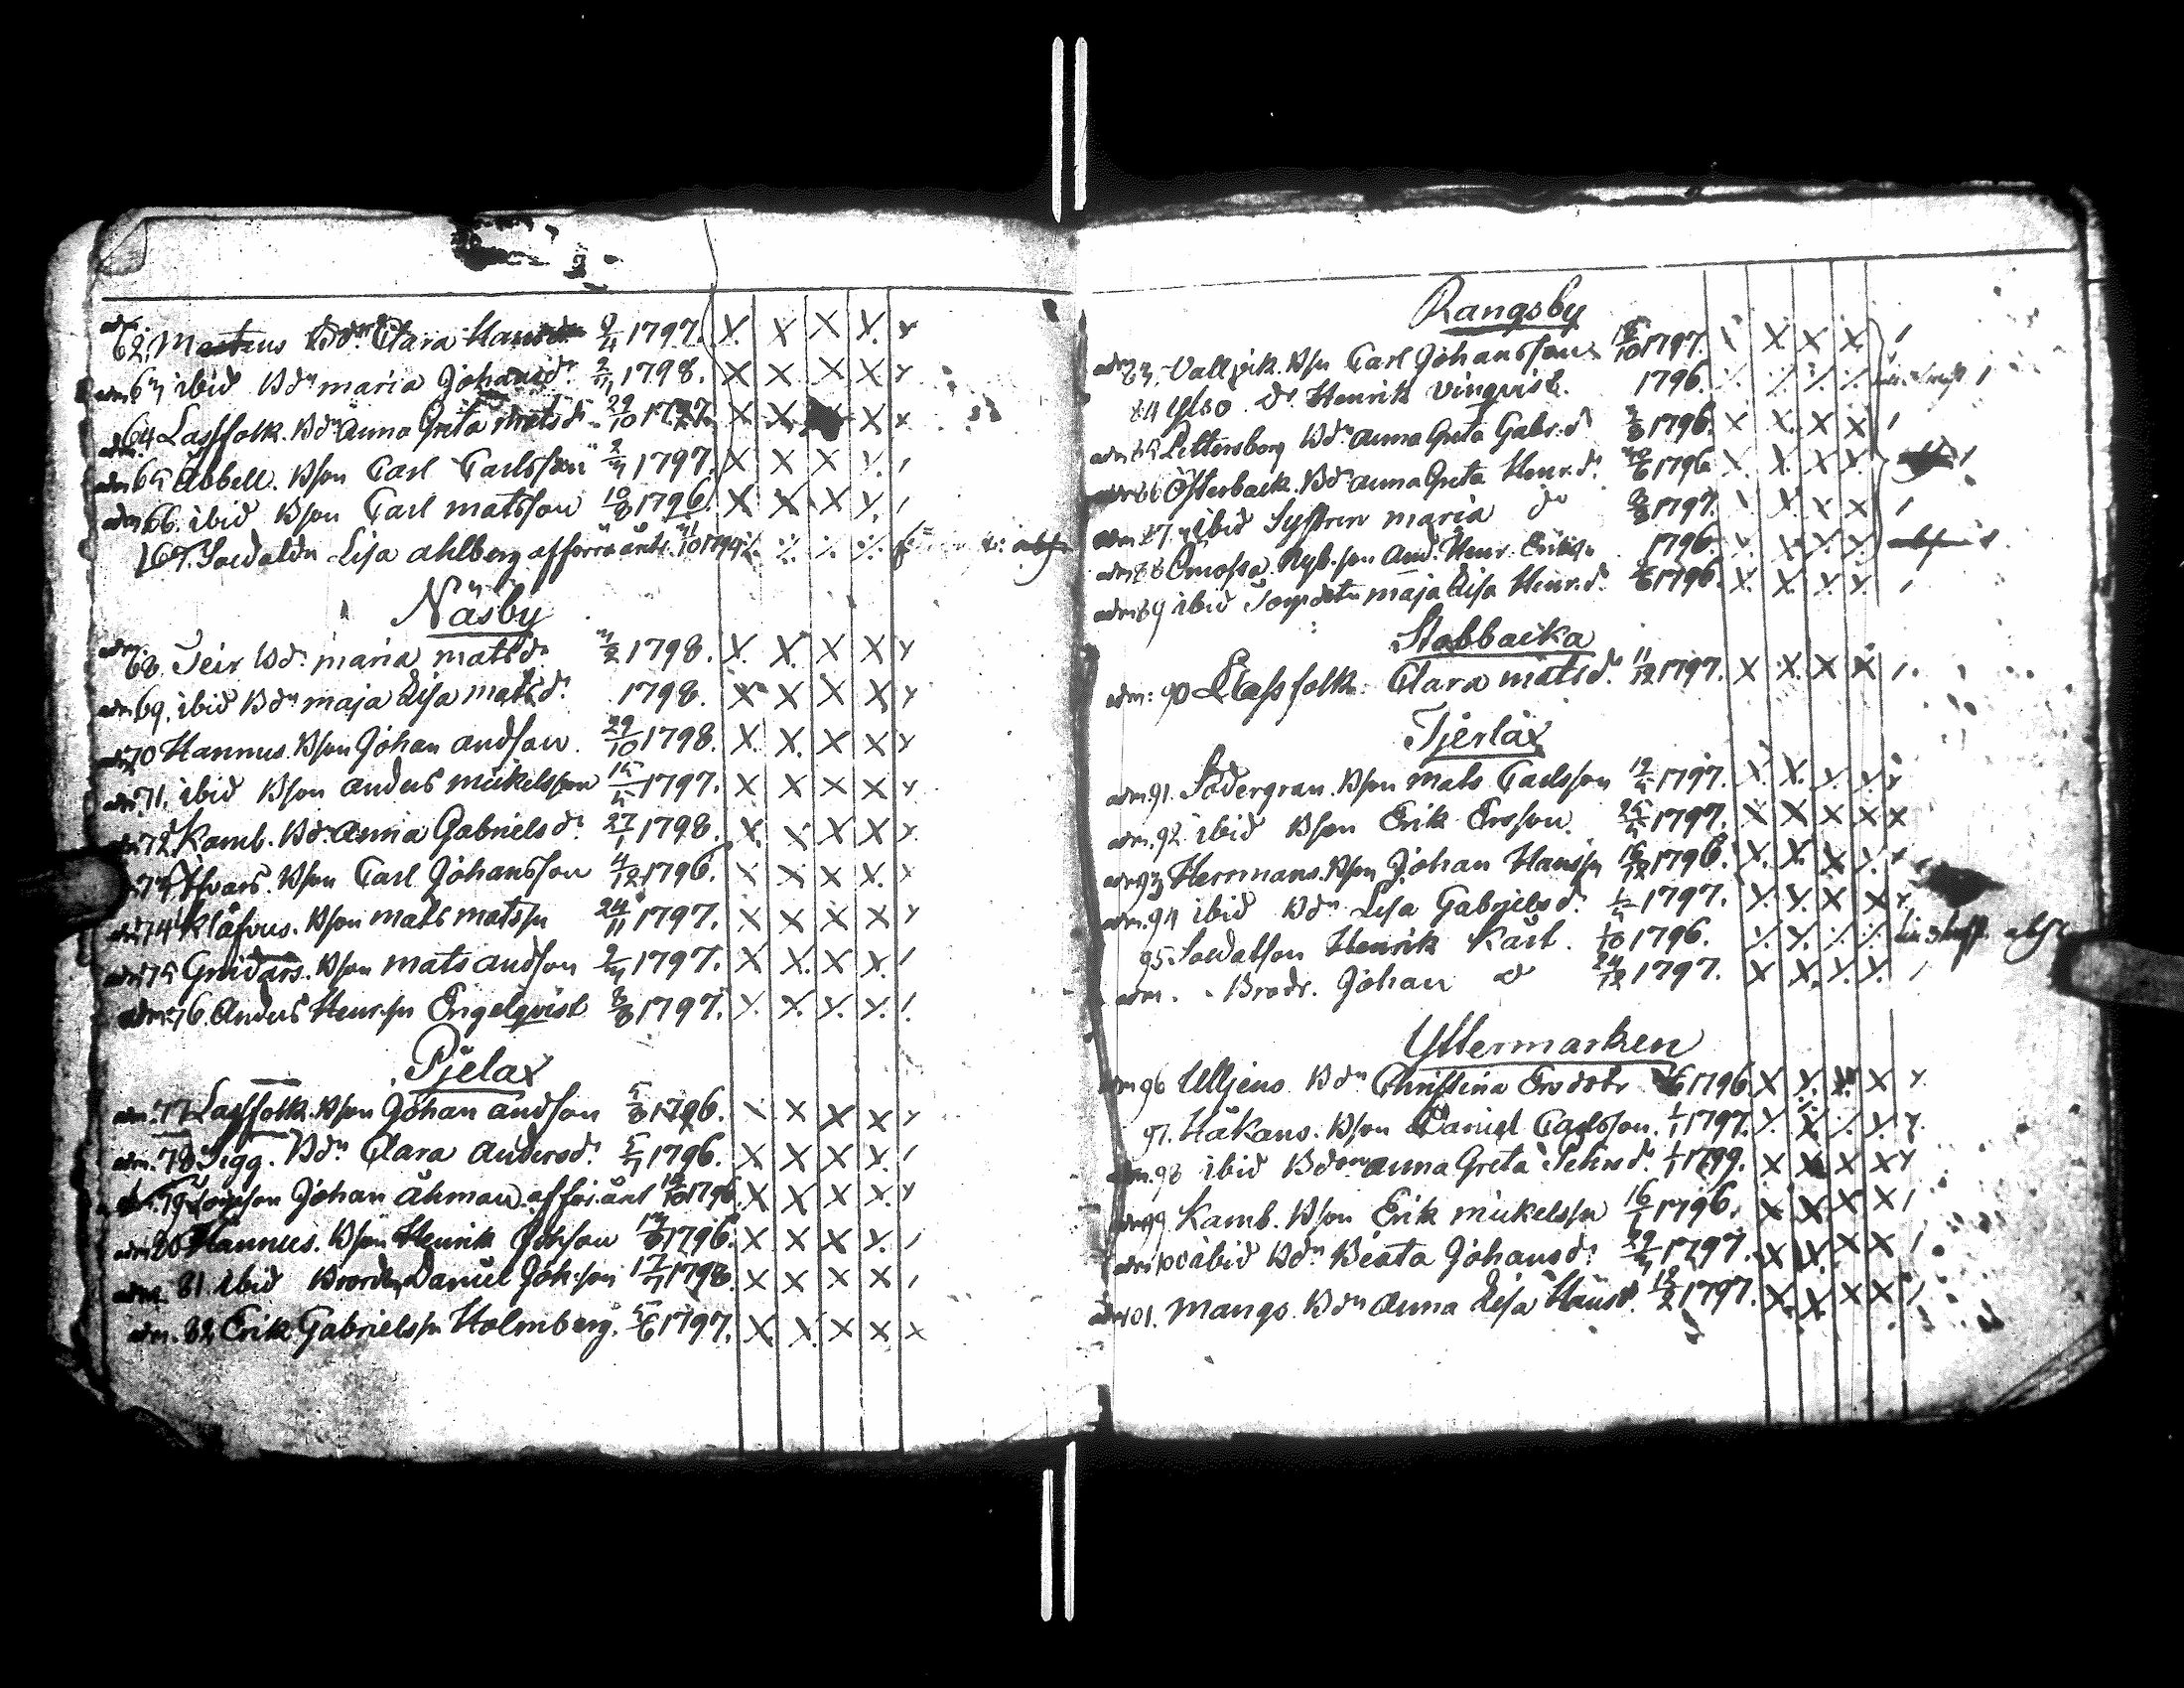 adm. 62. Mårtens Bdr Clara Hansdr 9/4 1797. X. X X X. x
adm 63 ibid Bdr maria Johansdr 2/3 1798. X X. X X x
adm. 64 Lassfolk. Bdr Anna Greta Matsdr 29/10 1797 X X. X X x
adm 65 Åbbell. Bson Carl Carlsson 2/3 1797. X X X X. /
adm 66. ibid Bson Carl Matsson 10/8 1796. X X X X. /
167. Soldatdr Lisa Ahlberg afförr ånt. 31/10 1794 ·/. ·/. ·/. ·/.
Näsby
adm. 68. Teir Bdr maria matsdr 3/2 1798. X. X. X X x
adm 69. ibid Bdr maja Lisa matsdr. 1798. X X X X x
adm 70 Hannus. Bson Johan Andson. 29/10 1798. X. X. X X x
adm 71. ibid Bson Anders Mickelsson 15/5 1797. X X X X x
adm 72 Kamb. Bdr Anna Gabrielsdr. 27/1 1798. X. X. X X x
73 Ifvars. Bson Carl Johansson 4/12 1796. X X X X. x
adm 74 Klåfvus. Bson mats matssn 24/11 1797. X X X X x
adm 75 Gnidars. Bson mats andson 2/3 1797. X X. X X. /
adm. 76. Anders Henrsn Engelqvist 8/8 1797. X. X. X. X. /.
Pjelax
adm. 77 Lassfolk. Bson Johan Andson 5/8 1796. X X X X x
adm. 78 Sigg. Bdr Clara Andersdr. 5/7 1796. X X X X. /
79 Torpson Johan Åhman afför. ånt 18/10 1796. X X X X. x
adm 80 Hannus. Bson Henrik Johson 13/8 1796. X X X X. /
adm. 81 ibid Brordn Daniel Johson 17/7 1798. X X X X /
adm. 82 Erik Gabrielssn Holmberg. 5/6 1797. X. X. X X x
Rangsby
adm 83. Vallvik. Bsn Carl Johansson 18/10 1797. X X X X. /
84 Ylbo do Henrik Vinqvist. 1796. ·/. ·/. ·/. ·/.
adm 85 Pettersborg Bdr Anna Greta Gabr.dr 3/8 1796. X X X X /
adm 86 Österback. Bdr Anna Greta Henr.dr. 1796 X. X. X X. /
adm 87 ibid Systren maria do 8/8 1797. X X X X /
adm 88 Ömossa Nyb.son And. Henr. 1796. X. X. X. X.
adm 89 ibid Torpdotr maja Lisa Henr.dr. 1796. X. X. X. X. /
Stobbacka
adm: 90 Klassfolk. Clara matsdr. 11/12 1797. X X. X X /.
Tjerlax
adm. 91. Södergran. Bson Mats Carlsson 19/5 1797. X X. X X x
adm. 92. ibid Bson Erik Ersson. 25/5 1797. X X X X X
adm 93 Herrmans. Bson Johan Hanssn 16/12 1796. X. X. X X. x
adm. 94 ibid Bdr Lisa Gabrielsdr. 1797. X. X. X X x.
95. Soldatson Henrik Kärl. 1/10 1796. ·/. ·/. ·/. ·/.
adm. Brodr. Johan do 24/12 1797. X X. X. X. /
Yttermarken
adm 96 Ulljens. Bdr Christina Ersdotr 1796 X X. X. X x.
97. Håkans. Bson Daniel Carlsson. 1/1 1797. X. X. ·/. X. x.
adm. 98 ibid Bdr Anna Greta 1/1 1799. X X X X x
adm 99. Kamb. Bson Erik Mickelssn 16/1 1796. X X X X /
adm 100 ibid Bdr Beata Johansdr. 29/3 1797. X X. X X /
adm 101. Mangs. Bdr Anna Lisa Hansdr. 18/2 1797. X. X. X X /